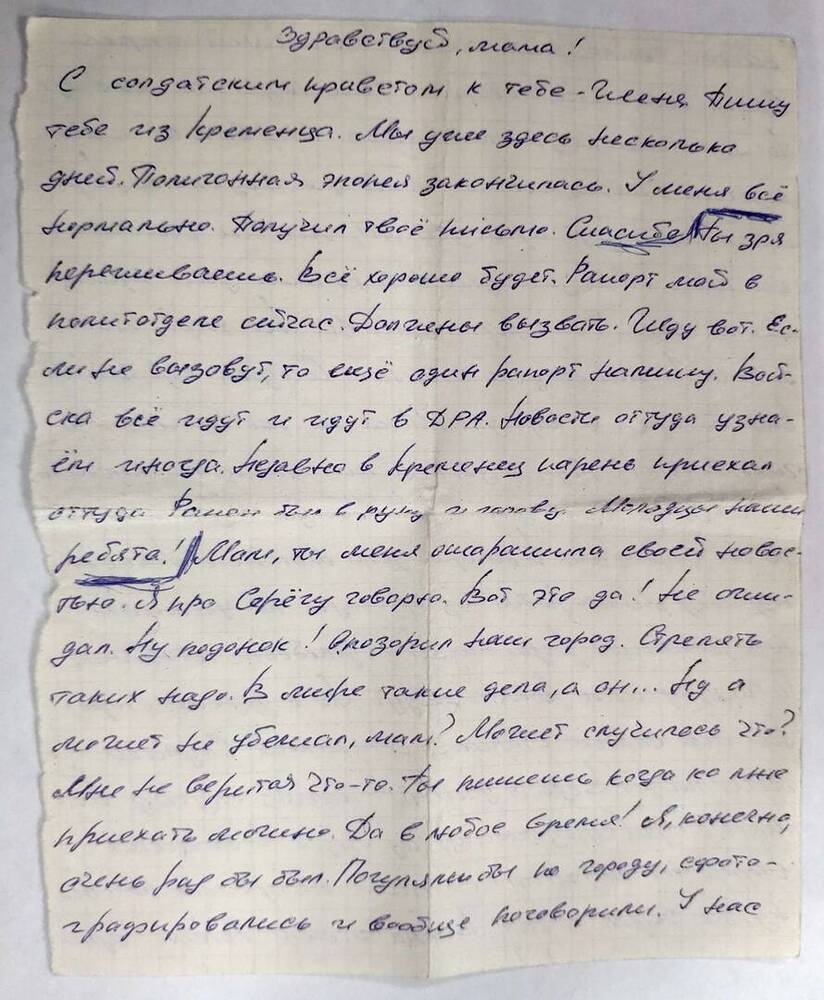 Здравствуй, мама!
С солдатским приветом к тебе - Женя. Пишу
тебе из Кременца. Мы уже здесь несколько
дней. Полигонная эпопея закончилась. У меня всё
нормально. Получил твоё письмо. Спасибо! Ты зря
переживаешь. Всё хорошо будет. Рапорт мой в
политотделе сейчас. Должны вызвать. Жду вот. Ес-
ли не вызовут, то ещё один рапорт напишу. Вой-
ска всё идут и идут в ДРА. Новости оттуда узна-
ём иногда. Недавно в Кременец парень приехал
оттуда. Ранен был в руку и голову. Молодцы наши
ребята! Мам, ты меня ошарашила своей новос-
тью. Я про Серёгу говорю. Вот это да! Не ожи-
дал. Ну подонок! Опозорил наш город. Стрелять
таких надо. В мире такие дела, а он... Ну а
может не убежал, мам? Может случилось что?
Мне не верится что-то. Ты пишешь когда ко мне
приехать можно. Да в любое время! Я, конечно,
очень рад бы был. Погуляли бы по городу, сфото-
графировались и вообще поговорили. У нас